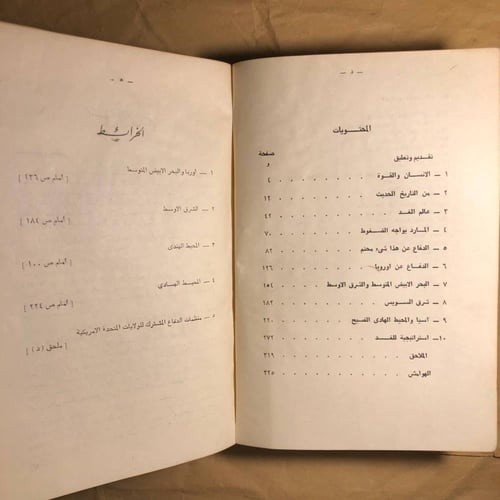 — د —
المحتويات
صفحة
تقديم وتعليق و
١ — الانسان والقوة ٤
٢ — من التاريخ الحديث ١٢
٣ — عالم الغد ٤٢
٤ — المارد يواجه الضغوط ٧٠
٥ — الدفاع عن هذا شيء محتم ٨٢
٦ — الدفاع عن اوروبا ١٢٦
٧ — البحر الابيض المتوسط والشرق الاوسط ١٥٤
٨ — شرق السويس ١٨٢
٩ — اسيا والمحيط الهادى الفسيح ٢٢٠
١٠ — استراتيجية للغد ٢٧٢
الملاحق ٣١٦
الهوامش ٣٢٥
— ه —
الخرائط
١ — اوربا والبحر الابيض المتوسط
[ أمام ص ١٣٦ ]
٢ — الشرق الاوسط
[ أمام ص ١٨٤ ]
٣ — المحيط الهندى
[ أمام ص ١٠٠ ]
٤ — المحيط الهادى
[ أمام ص ٢٢٤ ]
٥ — منظمات الدفاع المشترك للولايات المتحدة الامريكية
[ ملحق ( د ) ]